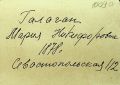 Галаган
Мария Никифоровна
1878г.
Севастопольская 112